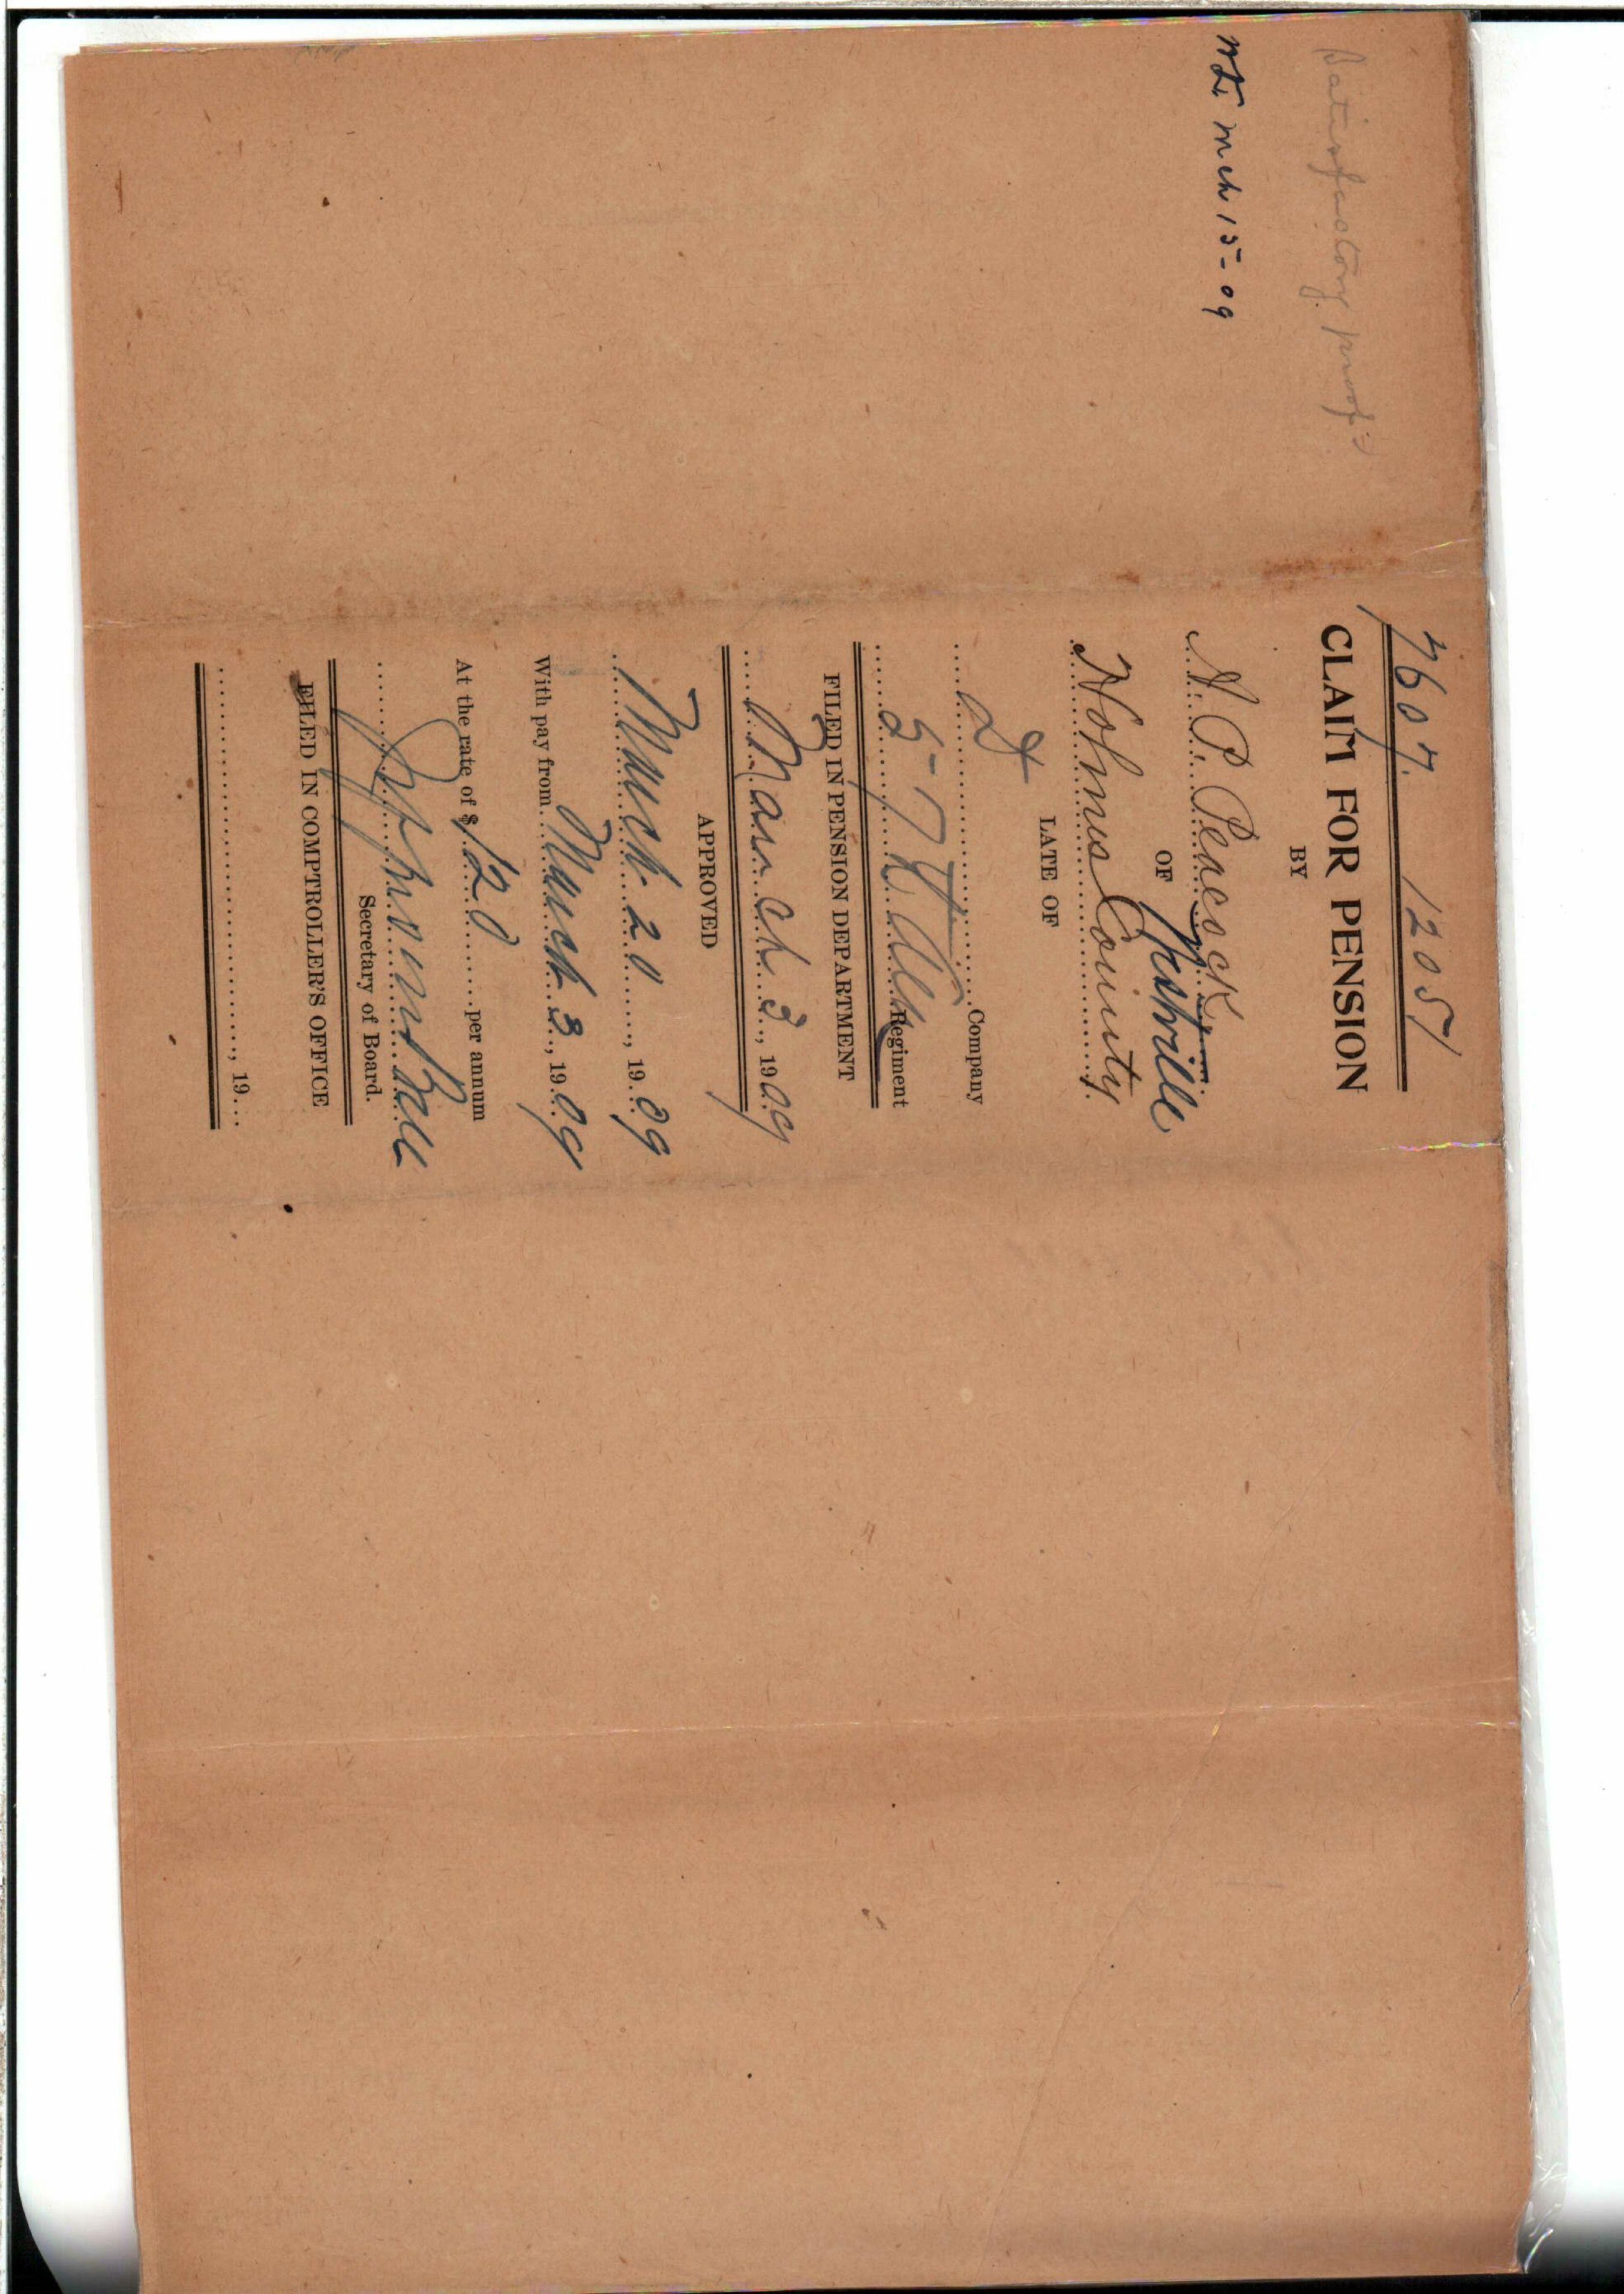 Satisfactory proof
Mch 15-09
7607. 1205
CLAIM FOR PENSION
BY
A. P. Peacock
OF
Holmes County
LATE OF
D Company
57th Ala Regiment
FILED IN PENSION DEPARTMENT
March 3, 1909
APPROVED
March 20, 1909
With pay from March 3, 1909
At the rate of $ 120 per annum
Secretary of Board.
FILED IN COMPTROLLER'S OFFICE
, 19